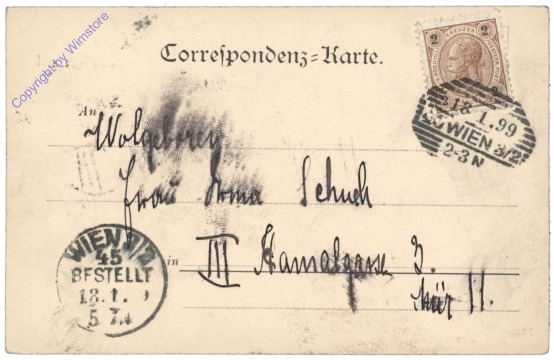 Copyright by Wimstore
Correspondenz-Karte.
2 KREUZER 2
18.1.99
WIEN 3/2
2-3 N
An
Wolgeboren
III
Frau Irma Schuch
in III
3.
Thür 11.
WIEN
45
BESTELLT
18.1.9